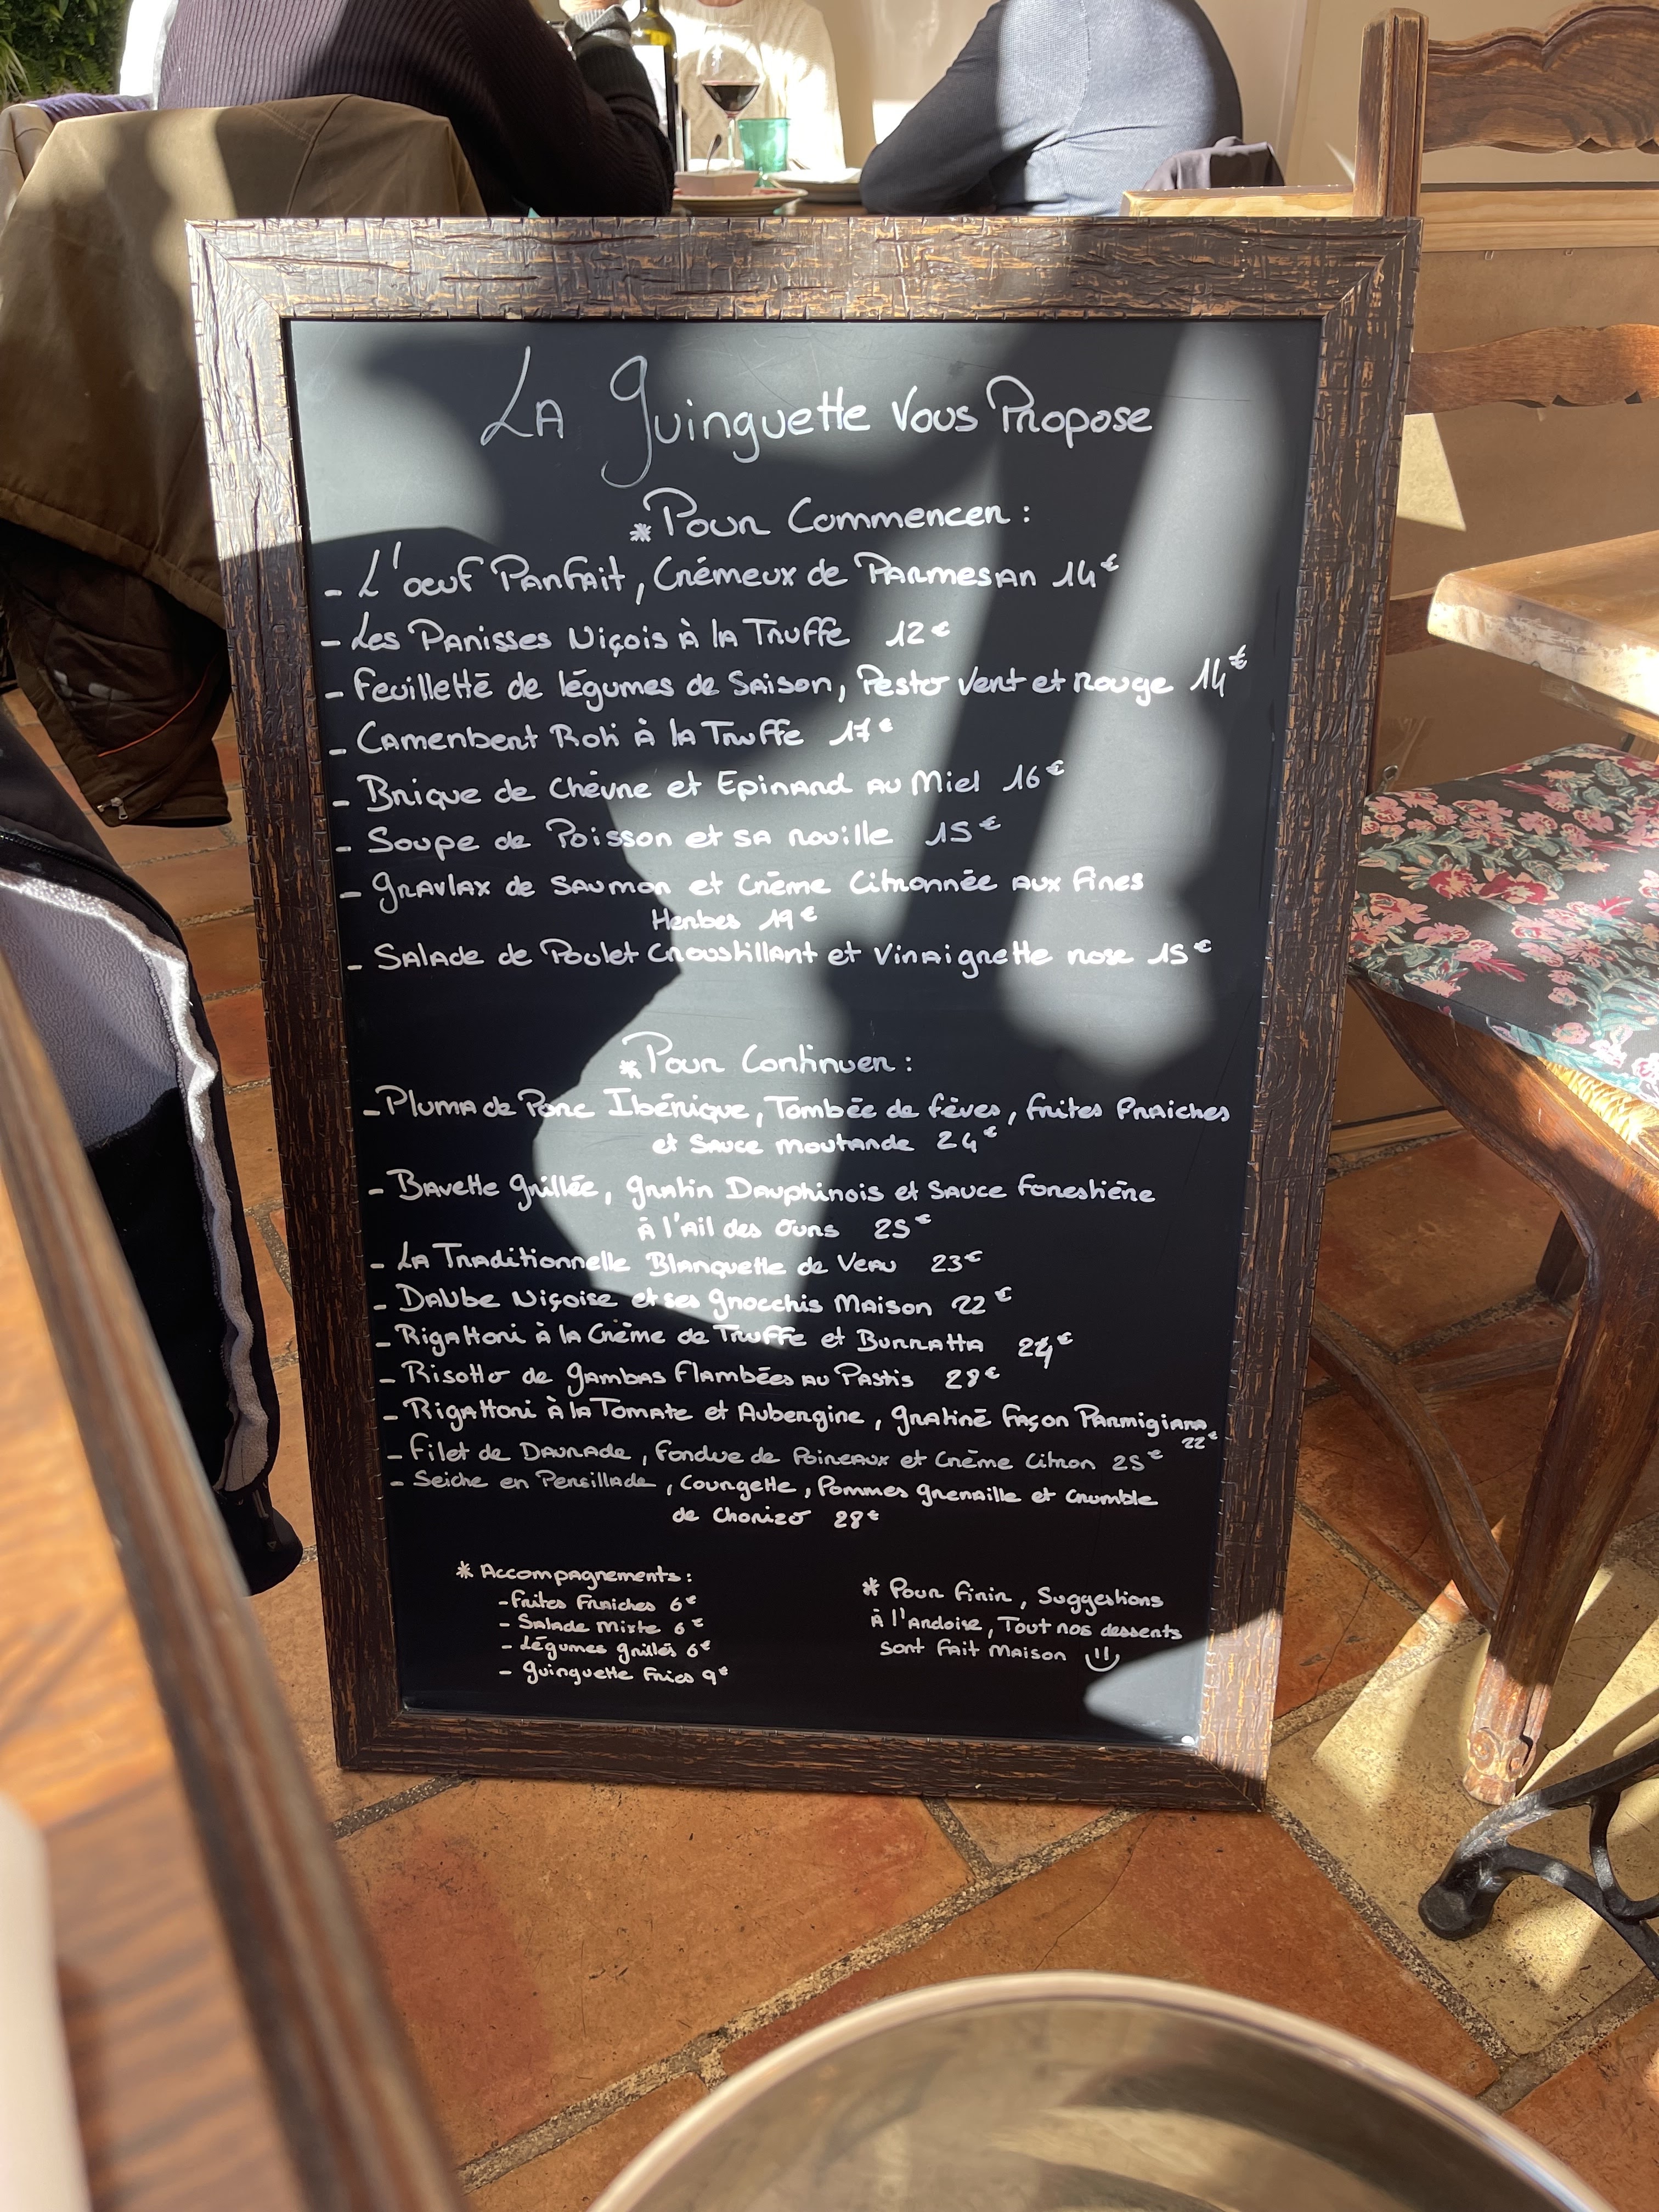 La Guinguette Vous Propose
* Pour Commencer :
- L'oeuf Parfait, Crémeux de Parmesan 14€
- Les Panisses Niçois à la Truffe 12€
- Feuilletté de légumes de Saison, Pesto Vert et Rouge 14€
- Camenbert Roti à la Truffe 17€
- Brique de Chèvre et Epinard au Miel 16€
- Soupe de Poisson et sa rouille 15€
- Gravlax de Saumon et Crème Citronnée aux Fines
Herbes 19€
- Salade de Poulet Croustillant et Vinaigrette rose 15€
* Pour Continuer :
- Pluma de Porc Ibérique, Tombée de fèves, frites Fraiches
et Sauce moutarde 24€
- Bavette grillée, gratin Dauphinois et Sauce Forestière
à l'Ail des Ours 25€
- La Traditionnelle Blanquette de Veau 23€
- Daube Niçoise et ses gnocchis Maison 22€
- Rigattoni à la Crème de Truffe et Burratta 24€
- Risotto de gambas Flambées au Pastis 28€
- Rigattoni à la Tomate et Aubergine, gratiné façon Parmigiana
22€
- Filet de Daurade, Fondue de Poireaux et Crème Citron 25€
- Seiche en Persillade, Courgette, Pommes grenaille et crumble
de Chorizo 28€
* Accompagnements :
- Frites Fraiches 6€
- Salade Mixte 6€
- Légumes grillés 6€
- Guinguette Fries 9€
* Pour Finir, Suggestions
à l'Ardoise, Tout nos desserts
sont Fait Maison